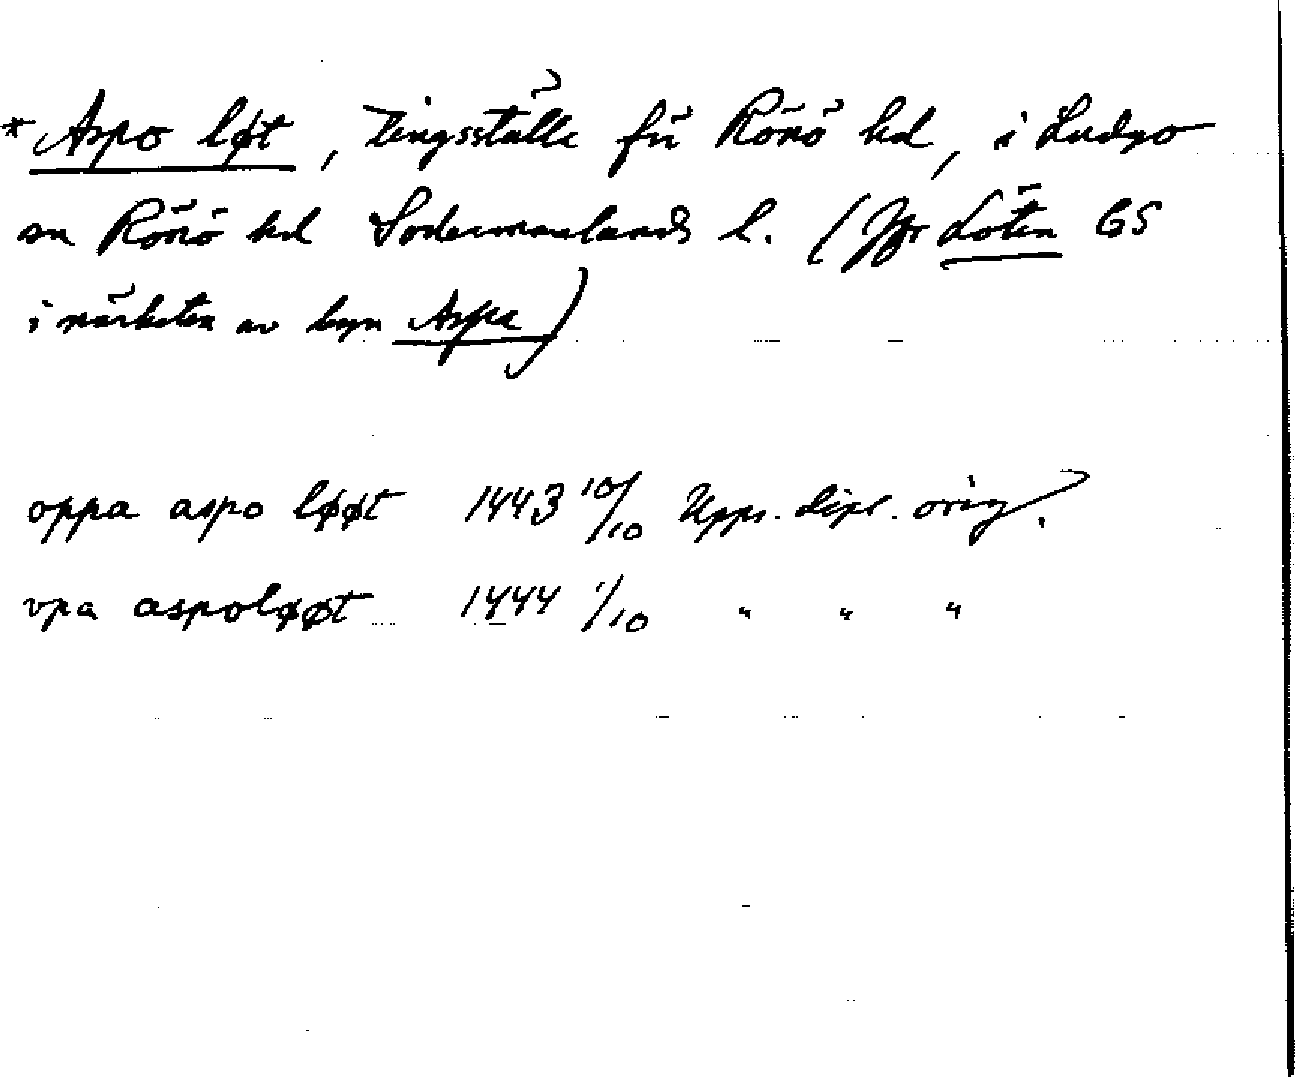 * Aspo løt, Tingsställe för Rönö hd, i Ludgo
sn Rönö hd Södermanlands l. (Jfr Löten GS
i närheten av byn Aspa)
oppa aspo løøt 1443 10/10 Upps. dipl. orig.
vpa aspoløøt 1444 1/10 " " "